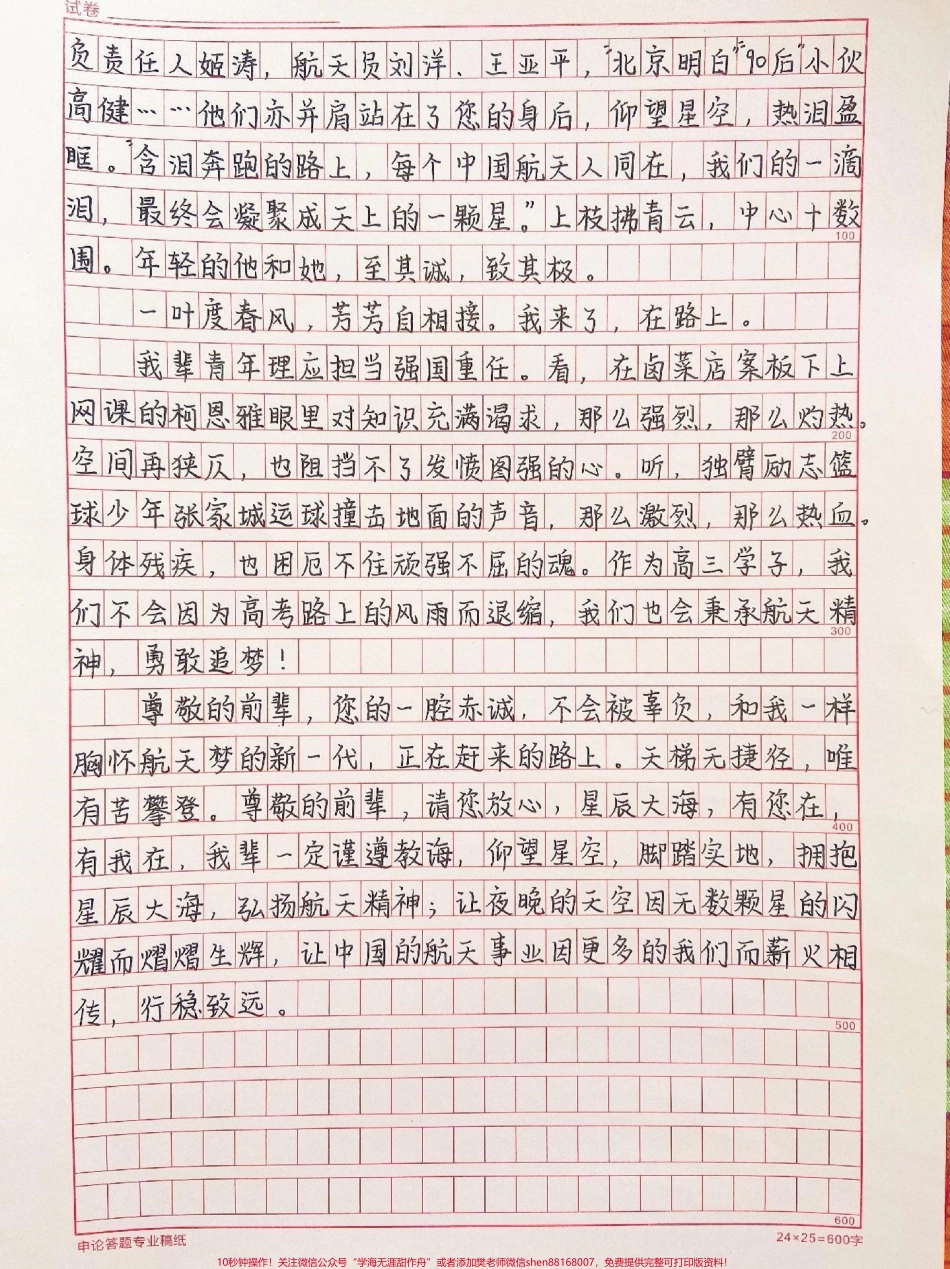 试卷
负责任人姬涛，航天员刘洋、王亚平，“北京明白”“90后”小伙
高健……他们亦并肩站在了您的身后，仰望星空，热泪盈
眶。“含泪奔跑的路上，每个中国航天人同在，我们的一滴
泪，最终会凝聚成天上的一颗星。”上枝拂青云，中心十数
100
围。年轻的他和她，至其诚，致其极。
一叶度春风，芳芳自相接。我来了，在路上。
我辈青年理应担当强国重任。看，在卤菜店案板下上
网课的柯恩雅眼里对知识充满渴求，那么强烈，那么灼热。
200
空间再狭仄，也阻挡不了发愤图强的心。听，独臂励志篮
球少年张家城运球撞击地面的声音，那么激烈，那么热血。
身体残疾，也困厄不住顽强不屈的魂。作为高三学子，我
们不会因为高考路上的风雨而退缩，我们也会秉承航天精
300
神，勇敢追梦！
尊敬的前辈，您的一腔赤诚，不会被辜负，和我一样
胸怀航天梦的新一代，正在赶来的路上。天梯无捷径，唯
有苦攀登。尊敬的前辈，请您放心，星辰大海，有您在，
400
有我在，我辈一定谨遵教诲，仰望星空，脚踏实地，拥抱
星辰大海，弘扬航天精神；让夜晚的天空因无数颗星的闪
耀而熠熠生辉，让中国的航天事业因更多的我们而薪火相
传，行稳致远。
500
600
申论答题专业稿纸
24×25=600字
10秒钟操作！关注微信公众号“学海无涯甜作舟”或者添加樊老师微信shen88168007，免费提供完整可打印版资料！